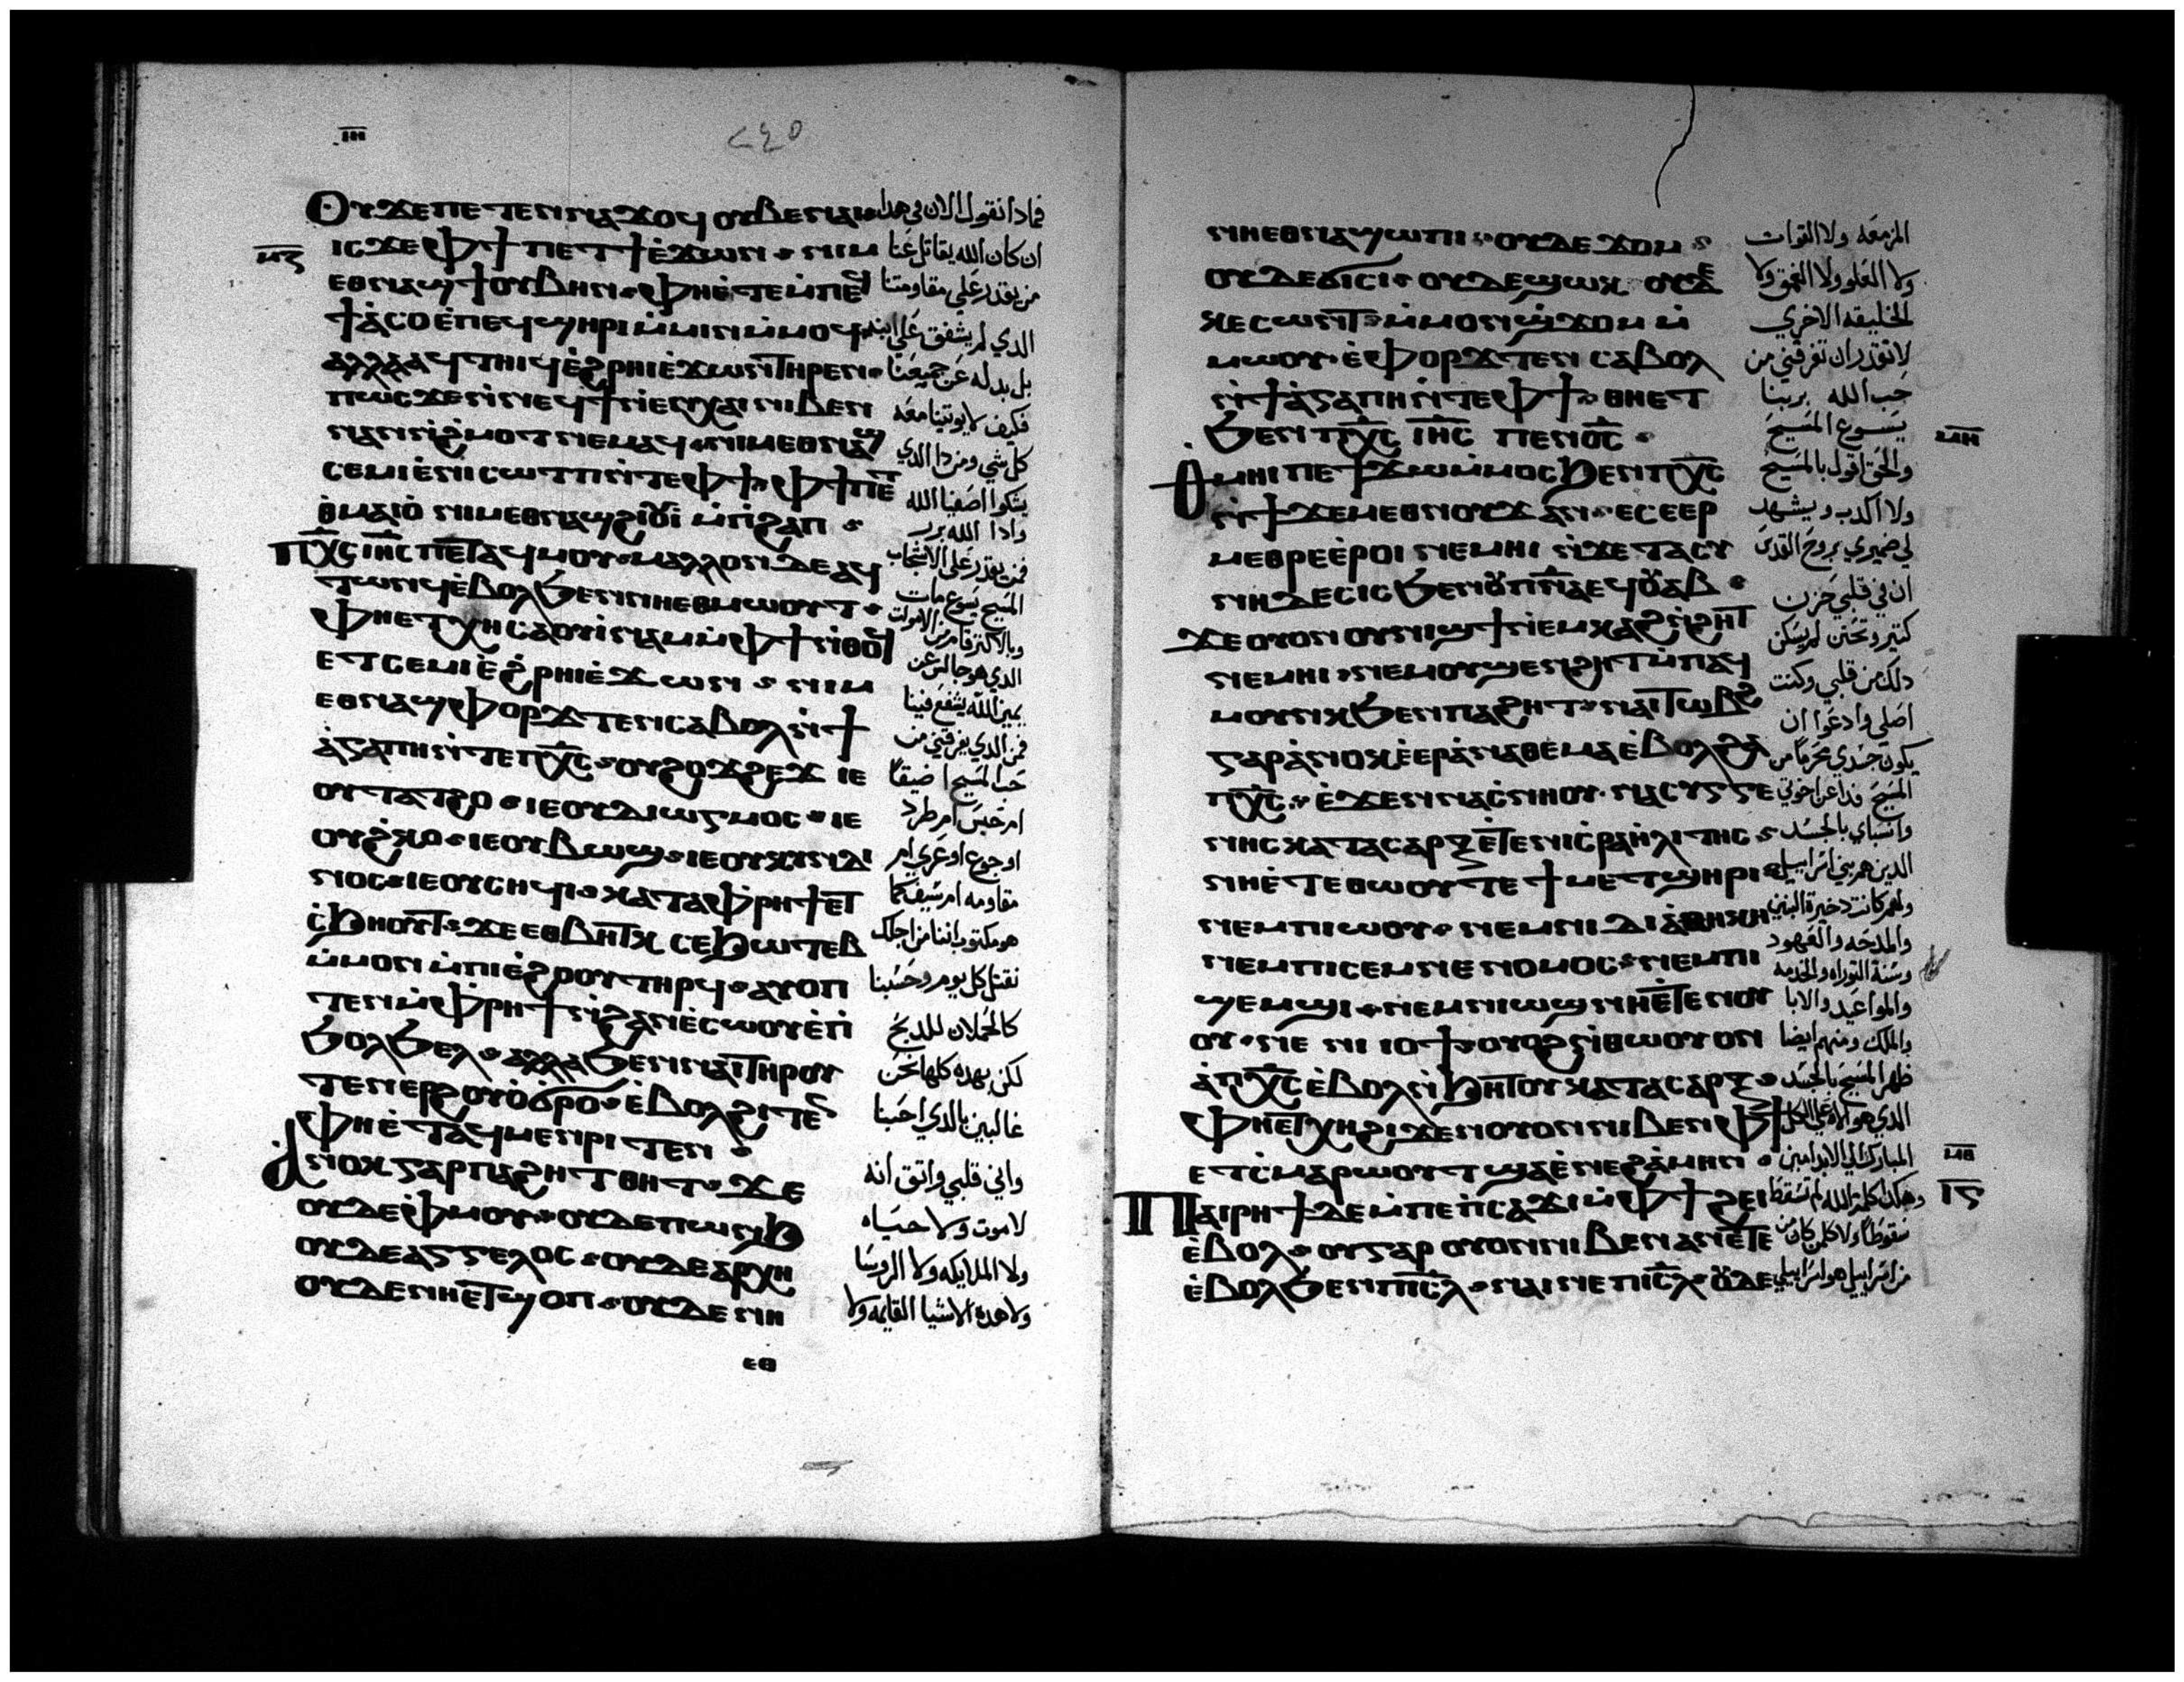 ⲓⲏ
٢٤٥
ⲙⲍ
Ⲟⲩϫⲉⲡⲉⲧⲉⲛⲛⲁϫⲟϥ ⲟⲩⲃⲉⲛⲁⲓ
ⲓⲥϫⲉ ⲫϯ ⲡⲉⲧϯⲉ̀ϫⲱⲛ ⲛⲓⲙ
ⲉⲑⲛⲁϣϯⲟⲩⲃⲏⲛ ⲫⲏⲉ̀ⲧⲉⲙ̀ⲡⲉϥ
ϯⲁ̀ⲥⲟ ⲉ̀ⲡⲉϥϣⲏⲣⲓ ⲙ̀ⲙⲓⲛⲙ̀ⲙⲟϥ
ⲁⲗⲗⲁⲁϥⲧⲏⲓϥ ⲉ̀ϩⲣⲏⲓⲉ̀ϫⲱⲛⲧⲏⲣⲉⲛ
ⲡⲱⲥ ϫⲉⲛ̀ⲛⲉϥϯⲛ̀ⲉⲛⲭⲁⲓ ⲛⲓⲃⲉⲛ
ⲛⲁⲛⲛ̀ϩ̀ⲙⲟⲧ ⲛⲉⲙⲁϥ ⲛⲓⲙⲉⲑⲛⲁϣ
ⲥⲉⲙⲓⲉ̀ⲛⲓⲥⲱⲧⲡⲛ̀ⲧⲉⲫϯ ⲫϯⲡⲉⲧ
ⲑ̀ⲙⲁⲓⲟ̀ ⲛⲓⲙⲉⲑⲛⲁϣϩⲓⲟⲩⲓ̀ ⲙ̀ⲡⲓϩⲁⲡ
Ⲡⲭ̅ⲥ ⲓⲏ̅ⲥ ⲡⲉⲧⲁϥⲙⲟⲩ ⲙⲁⲗⲗⲟⲛ ⲇⲉ ⲁϥ
ⲧⲱⲛϥ ⲉ̀ⲃⲟⲗϧⲉⲛⲛⲏⲉⲑⲙⲱⲟⲩⲧ
ⲫⲏⲉⲧⲭⲏ ⲥⲁⲟⲩⲓ̀ⲛⲁⲙ ⲙ̀ⲫϯ ⲛ̀ⲑⲟϥ
ⲉⲧⲥⲉⲙⲓ ⲉ̀ϩ̀ⲣⲏⲓⲉ̀ϫⲱⲛ ⲛⲓⲙ
ⲉⲑⲛⲁϣⲫⲟⲣϫⲧⲉⲛ ⲥⲁⲃⲟⲗ ⲛ̀ϯ
ⲁ̀ⲅⲁⲡⲏ ⲛ̀ⲧⲉⲡⲭ̅ⲥ ⲟⲩϩⲟϫϩⲉϫ ⲓⲉ
ⲟⲩⲧⲁⲧϩⲟ ⲓⲉⲟⲩⲇⲓⲱⲅⲙⲟⲥ ⲓⲉ
ⲟⲩϩ̀ⲕⲟ ⲓⲉⲟⲩⲃⲱϣ ⲓⲉⲟⲩⲕⲩⲛⲇⲓ
ⲛⲟⲥ ⲓⲉⲟⲩⲥⲏϥⲓ ⲕⲁⲧⲁⲫ̀ⲣⲏϯⲉⲧ
ⲥ̀ϧⲏⲟⲩⲧ ϫⲉ ⲉⲑⲃⲏⲧⲕ ⲥⲉϧⲱⲧⲉⲃ
ⲙ̀ⲙⲟⲛ ⲙ̀ⲡⲓⲉ̀ϩⲟⲟⲩ ⲧⲏⲣϥ ⲁⲩⲟⲡ
ⲧⲉⲛ ⲙ̀ⲫ̀ⲣⲏϯ ⲛ̀ϩⲁⲛⲉ̀ⲥⲱⲟⲩ ⲉ̀ⲡ̀
ϧⲟⲗϧⲉⲗ ⲁⲗⲗⲁ ϧⲉⲛⲛⲁⲓⲧⲏⲣⲟⲩ
ⲧⲉⲛⲉⲣϩⲟⲩⲟ̀ϭ̀ⲣⲟ ⲉ̀ⲃⲟⲗϩⲓⲧⲉⲛ
ⲫⲏⲉ̀ⲧⲁϥⲙⲉⲛⲣⲓⲧⲉⲛ
Ⲁⲛⲟⲕ ⲅⲁⲣ ⲡⲁϩⲏⲧ ⲑⲏⲧ ϫⲉ
ⲟⲩⲇⲉ ⲫ̀ⲙⲟⲩ ⲟⲩⲇⲉ ⲡⲱⲛϧ
ⲟⲩⲇⲉⲁⲅⲅⲉⲗⲟⲥ ⲟⲩⲇⲉⲁⲣⲭⲏ
ⲟⲩⲇⲉⲛⲏⲉⲧϣⲟⲡ ⲟⲩⲇⲉ ⲛⲏ
ⲉⲑ
فماذا نقول الان في هدا
ان كان الله يقاتل عنا
من يقدر على مقاومتنا
الدي لم يشفق على ابنه
بل بدله عن جميعنا
فكيف لا يوتينا معه
كل شي ومن دا الدي
يشكوا اصفيا الله
وادا الله برر
فمن يقدر على الانتجاب
المسيح يسوع مات
وبالاكتر قام من الاموات
الدي هو جالس عن
يمين الله يشفع فينا
فمن الدي يفرقني من
حب المسيح اضيقا
ام حبس ام طرد
او جوع او عري ام
مقاومه ام سيف كما
هو مكتوب اننا من اجلك
نقتل كل يوم وحسبنا
كالحملان للدبح
لكن بهده كلها نحن
غالبين بالدي احبنا
واني قلبي واتق انه
لا موت ولا حياه
ولا الملايكه ولا الروسا
ولا هده الاشيا القايمه ولا
ⲛⲏⲉⲑⲛⲁϣⲱⲡⲓ ⲟⲩⲇⲉ ϫⲟⲙ
ⲟⲩⲇⲉϭⲓⲥⲓ ⲟⲩⲇⲉϣⲱⲕ ⲟⲩⲇⲉ
ⲕⲉⲥⲱⲛⲧ ⲙ̀ⲙⲟⲛϣ̀ϫⲟⲙ ⲙ̀
ⲙⲱⲟⲩ ⲉ̀ⲫⲟⲣϫⲧⲉⲛ ⲥⲁⲃⲟⲗ
ⲛ̀ϯⲁ̀ⲅⲁⲡⲏ ⲛ̀ⲧⲉⲫϯ ⲑⲏⲉⲧ
ϧⲉⲛ ⲡⲭ̅ⲥ ⲓⲏ̅ⲥ ⲡⲉⲛⲟ̅ⲥ̅
Ⲟⲩⲙⲏⲓ ⲡⲉϯϫⲱⲙ̀ⲙⲟⲥ ϧⲉⲛ ⲡⲭ̅ⲥ
ⲛ̀ϯϫⲉⲙⲉⲑⲛⲟⲩϫ ⲁⲛ ⲉⲥⲉⲣ
ⲙⲉⲑⲣⲉⲉ̀ⲣⲟⲓ ⲛⲉⲙⲏⲓ ⲛ̀ϫⲉ ⲧⲁⲥⲩ
ⲛⲏⲇⲉⲥⲓⲥ ϧⲉⲛⲟⲩⲡⲛ̅ⲁ̅ ⲉϥⲟⲩⲁⲃ
ϫⲉ ⲟⲩⲟⲛ ⲟⲩⲛⲓϣϯ ⲛ̀ⲉⲙⲕⲁϩⲛ̀ϩⲏⲧ
ⲛⲉⲙⲏⲓ ⲛⲉⲙⲟⲩϣⲉⲛϩⲏⲧ ⲙ̀ⲡⲁϥ
ⲙⲟⲩⲛⲕ ϧⲉⲛⲡⲁϩⲏⲧ ⲛⲁⲓⲧⲱⲃϩ
ⲅⲁⲣ ⲁ̀ⲛⲟⲕ ⲉ̀ⲉⲣⲁ̀ⲛⲁⲑⲉⲙⲁ ⲉ̀ⲃⲟⲗϩⲁ
ⲡⲭ̅ⲥ ⲉ̀ϫⲉⲛⲛⲁⲥ̀ⲛⲏⲟⲩ ⲛⲁⲥⲩⲅⲅⲉ
ⲛⲏⲥ ⲕⲁⲧⲁⲥⲁⲣⲝ ⲉ̀ⲧⲉⲛⲓⲥ̀ⲣⲁⲏ̀ⲗⲓⲧⲏⲥ
ⲛⲏⲉ̀ⲧⲉⲑⲱⲟⲩ ⲧⲉ ϯⲙⲉⲧϣⲏⲣⲓ
ⲛⲉⲙⲡⲓⲱⲟⲩ ⲛⲉⲙⲛⲓⲇⲓⲁ̀ⲑⲏⲕⲏ
ⲛⲉⲙⲡⲓⲥⲉⲙⲛⲉ ⲛⲟⲙⲟⲥ ⲛⲉⲙⲡⲓ
ϣⲉⲙϣⲓ ⲛⲉⲙⲛⲓⲱϣ ⲛⲏⲉ̀ⲧⲉⲛⲟⲩ
ⲟⲩ ⲛⲉ ⲛⲓⲓⲟϯ ⲟⲩⲟϩ ⲛ̀ⲑⲱⲟⲩ ⲟⲛ
ⲁ̀ ⲡⲭ̅ⲥ ⲉ̀ⲃⲟⲗⲛ̀ϧⲏⲧⲟⲩ ⲕⲁⲧⲁⲥⲁⲣⲝ
ⲫⲏⲉⲧⲭⲏ ϩⲓϫⲉⲛⲟⲩⲟⲛⲛⲓⲃⲉⲛ ⲫϯ
ⲉⲧⲥ̀ⲙⲁⲣⲱⲟⲩⲧ ϣⲁⲉ̀ⲛⲉϩ ⲁ̀ⲙⲏⲛ
Ⲡⲁⲓⲣⲏϯ ⲇⲉ ⲙ̀ⲡⲉⲡ̀ⲥⲁϫⲓ ⲙ̀ⲫϯ ϩⲉⲓ
ⲉ̀ⲃⲟⲗ ⲟⲩⲅⲁⲣ ⲟⲩⲟⲛⲛⲓⲃⲉⲛ ⲁⲛⲉ̀ⲧⲉ
ⲉ̀ⲃⲟⲗϧⲉⲛⲡⲓⲥ̅ⲗ̅ ⲛⲁⲓⲛⲉ ⲡⲓⲥ̅ⲗ̅ ⲟⲩⲇⲉ
المزمعه ولا القوات
ولا العلو ولا العمق ولا
الخليقه الاخري
لا تقدر ان تفرقني من
حب الله بربنا
يسوع المسيح
والحق اقول بالمسيح
ولا اكدب ويشهد
لي ضميري بروح القدس
ان في قلبي حزن
كتير وتحنن لم يسكن
دلك من قلبي وكنت
اصلي وادعوا ان
يكون جسدي محرما من
المسيح فدا عن اخوتي
وانسباي بالجسد
الدين هم بني اسراييل
ولهم كانت دخيرة البنين
والمدحه والعهود
وسنة التوراه والخدمه
والمواعيد والابا
والملك ومنهم ايضا
ظهر المسيح بالجسد
الدي هو الاه على الكل
المبارك الي الابد امين
وهكدا كلمة الله لم تسقط
سقوطا ولا كلمن كان من
من اسراييل هو اسراييلي
ⲙⲏ
ⲙⲑ
ⲓⲋ